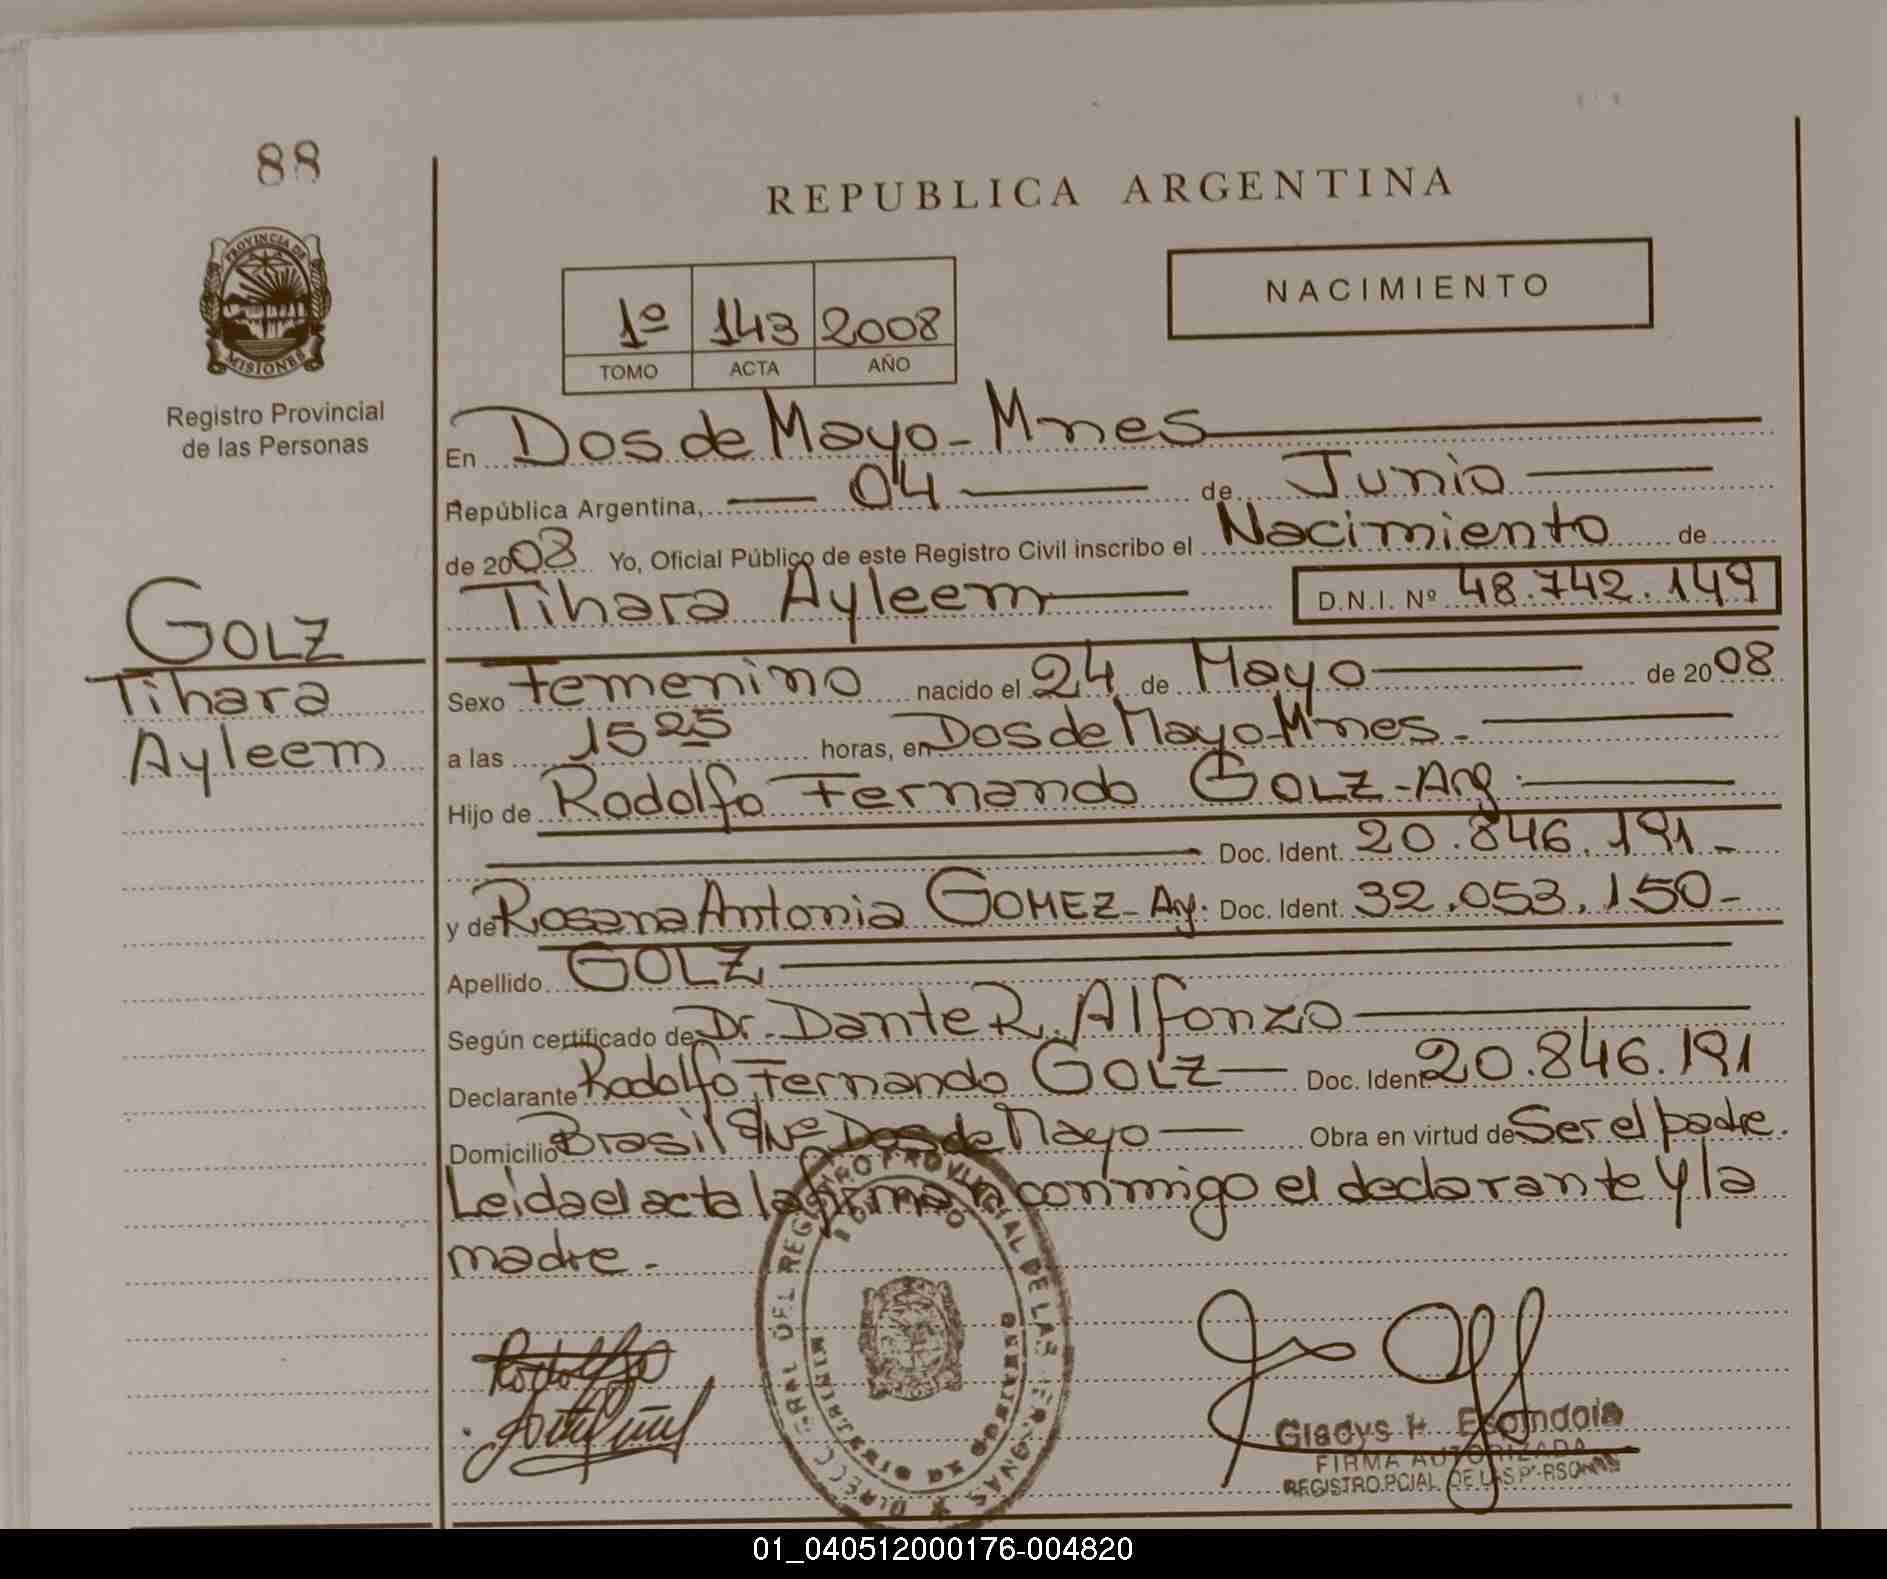 88
REPUBLICA ARGENTINA
PROVINCIA DE
MISIONES
Registro Provincial
de las Personas
1º 143 2008
TOMO ACTA AÑO
NACIMIENTO
En Dos de Mayo - Mnes
República Argentina, 04 de Junio
de 2008 Yo, Oficial Público de este Registro Civil inscribo el Nacimiento de
Tihara Ayleem D.N.I. Nº 48.742.149
GOLZ
Tihara
Ayleem
Sexo Femenino nacido el 24 de Mayo de 2008
a las 15 25 horas, en Dos de Mayo-Mnes.
Hijo de Rodolfo Fernando GOLZ-Arg.
Doc. Ident. 20.846.191-
y de Rosana Antonia GOMEZ-Arg. Doc. Ident. 32.053.150-
Apellido GOLZ
Según certificado de Dr. Dante R. Alfonzo
Declarante Rodolfo Fernando GOLZ Doc. Ident 20.846.191
Domicilio Brasil S/Nº Dos de Mayo Obra en virtud de Ser el padre.
Leida el acta la firman conmigo el declarante y la
madre.-
REGISTRO PROVINCIAL DE LAS
Rodolfo
Gladys H. Espindola
FIRMA AUTORIZADA
REGISTRO.PCIAL. DE LAS PERSONAS
01_040512000176-004820